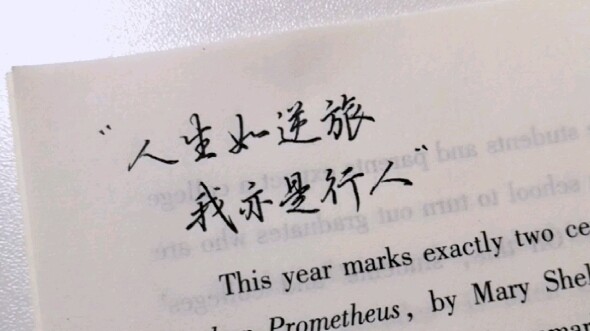 “人生如逆旅
我亦是行人”
This year marks exactly two ce
Prometheus, by Mary Shel